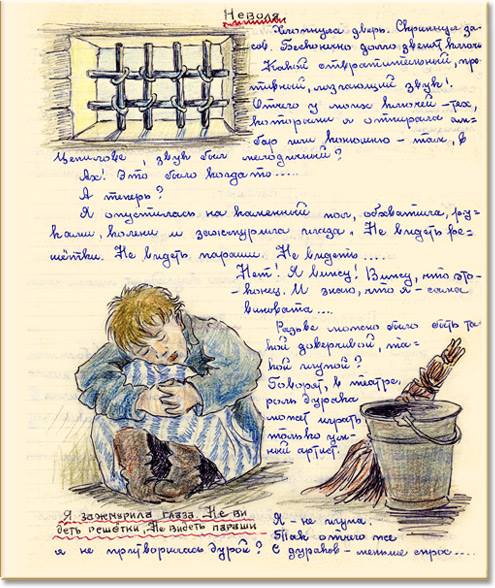 Неволя.
Хлопнула дверь. Скрипнул за-
сов. Бесконечно долго звенят ключи
Какой отвратительный, про-
тивный, лязгающий звук!
Отчего у моих ключей – тех,
которыми я отпирала ам-
бар или конюшню – там, в
Цепилове, звук был мелодичный?
Ах! Это было когда то.....
А теперь?
Я опустилась на каменный пол, обхватила, ру-
ками, колени и зажмурила глаза. Не видеть ре-
шётки. Не видеть параши. Не видеть ....
Нет! Я вижу! Вижу, что это-
- конец. И знаю, что я - сама
виновата ...
Разве можно было быть та-
кой доверчивой, та-
кой глупой?
Говорят, в театре,
роль дурака
может играть
только ум-
ный артист.
Я зажмурила глаза. Не ви
деть решётки, Не видеть параши
Я - не глупа.
Так отчего же
я не притворилась дурой? С дураков - меньше спрос....